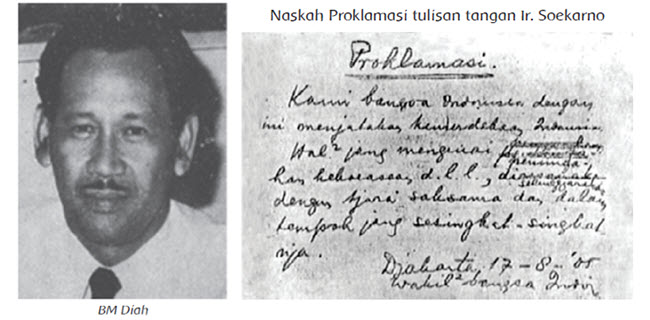 Naskah Proklamasi tulisan tangan Ir. Soekarno
Proklamasi.
Kami bangsa Indonesia dengan
ini menjatakan kemerdekaan Indonesia.
Hal² jang mengenai
peminda-
han kekoeasaan, d.l.l.,
diselenggarakan
dengan tjara saksama dan dalam
tempoh jang sesingkat-singkat
nja.
Djakarta, 17-8-'05
Wakil² bangsa Indon.
BM Diah